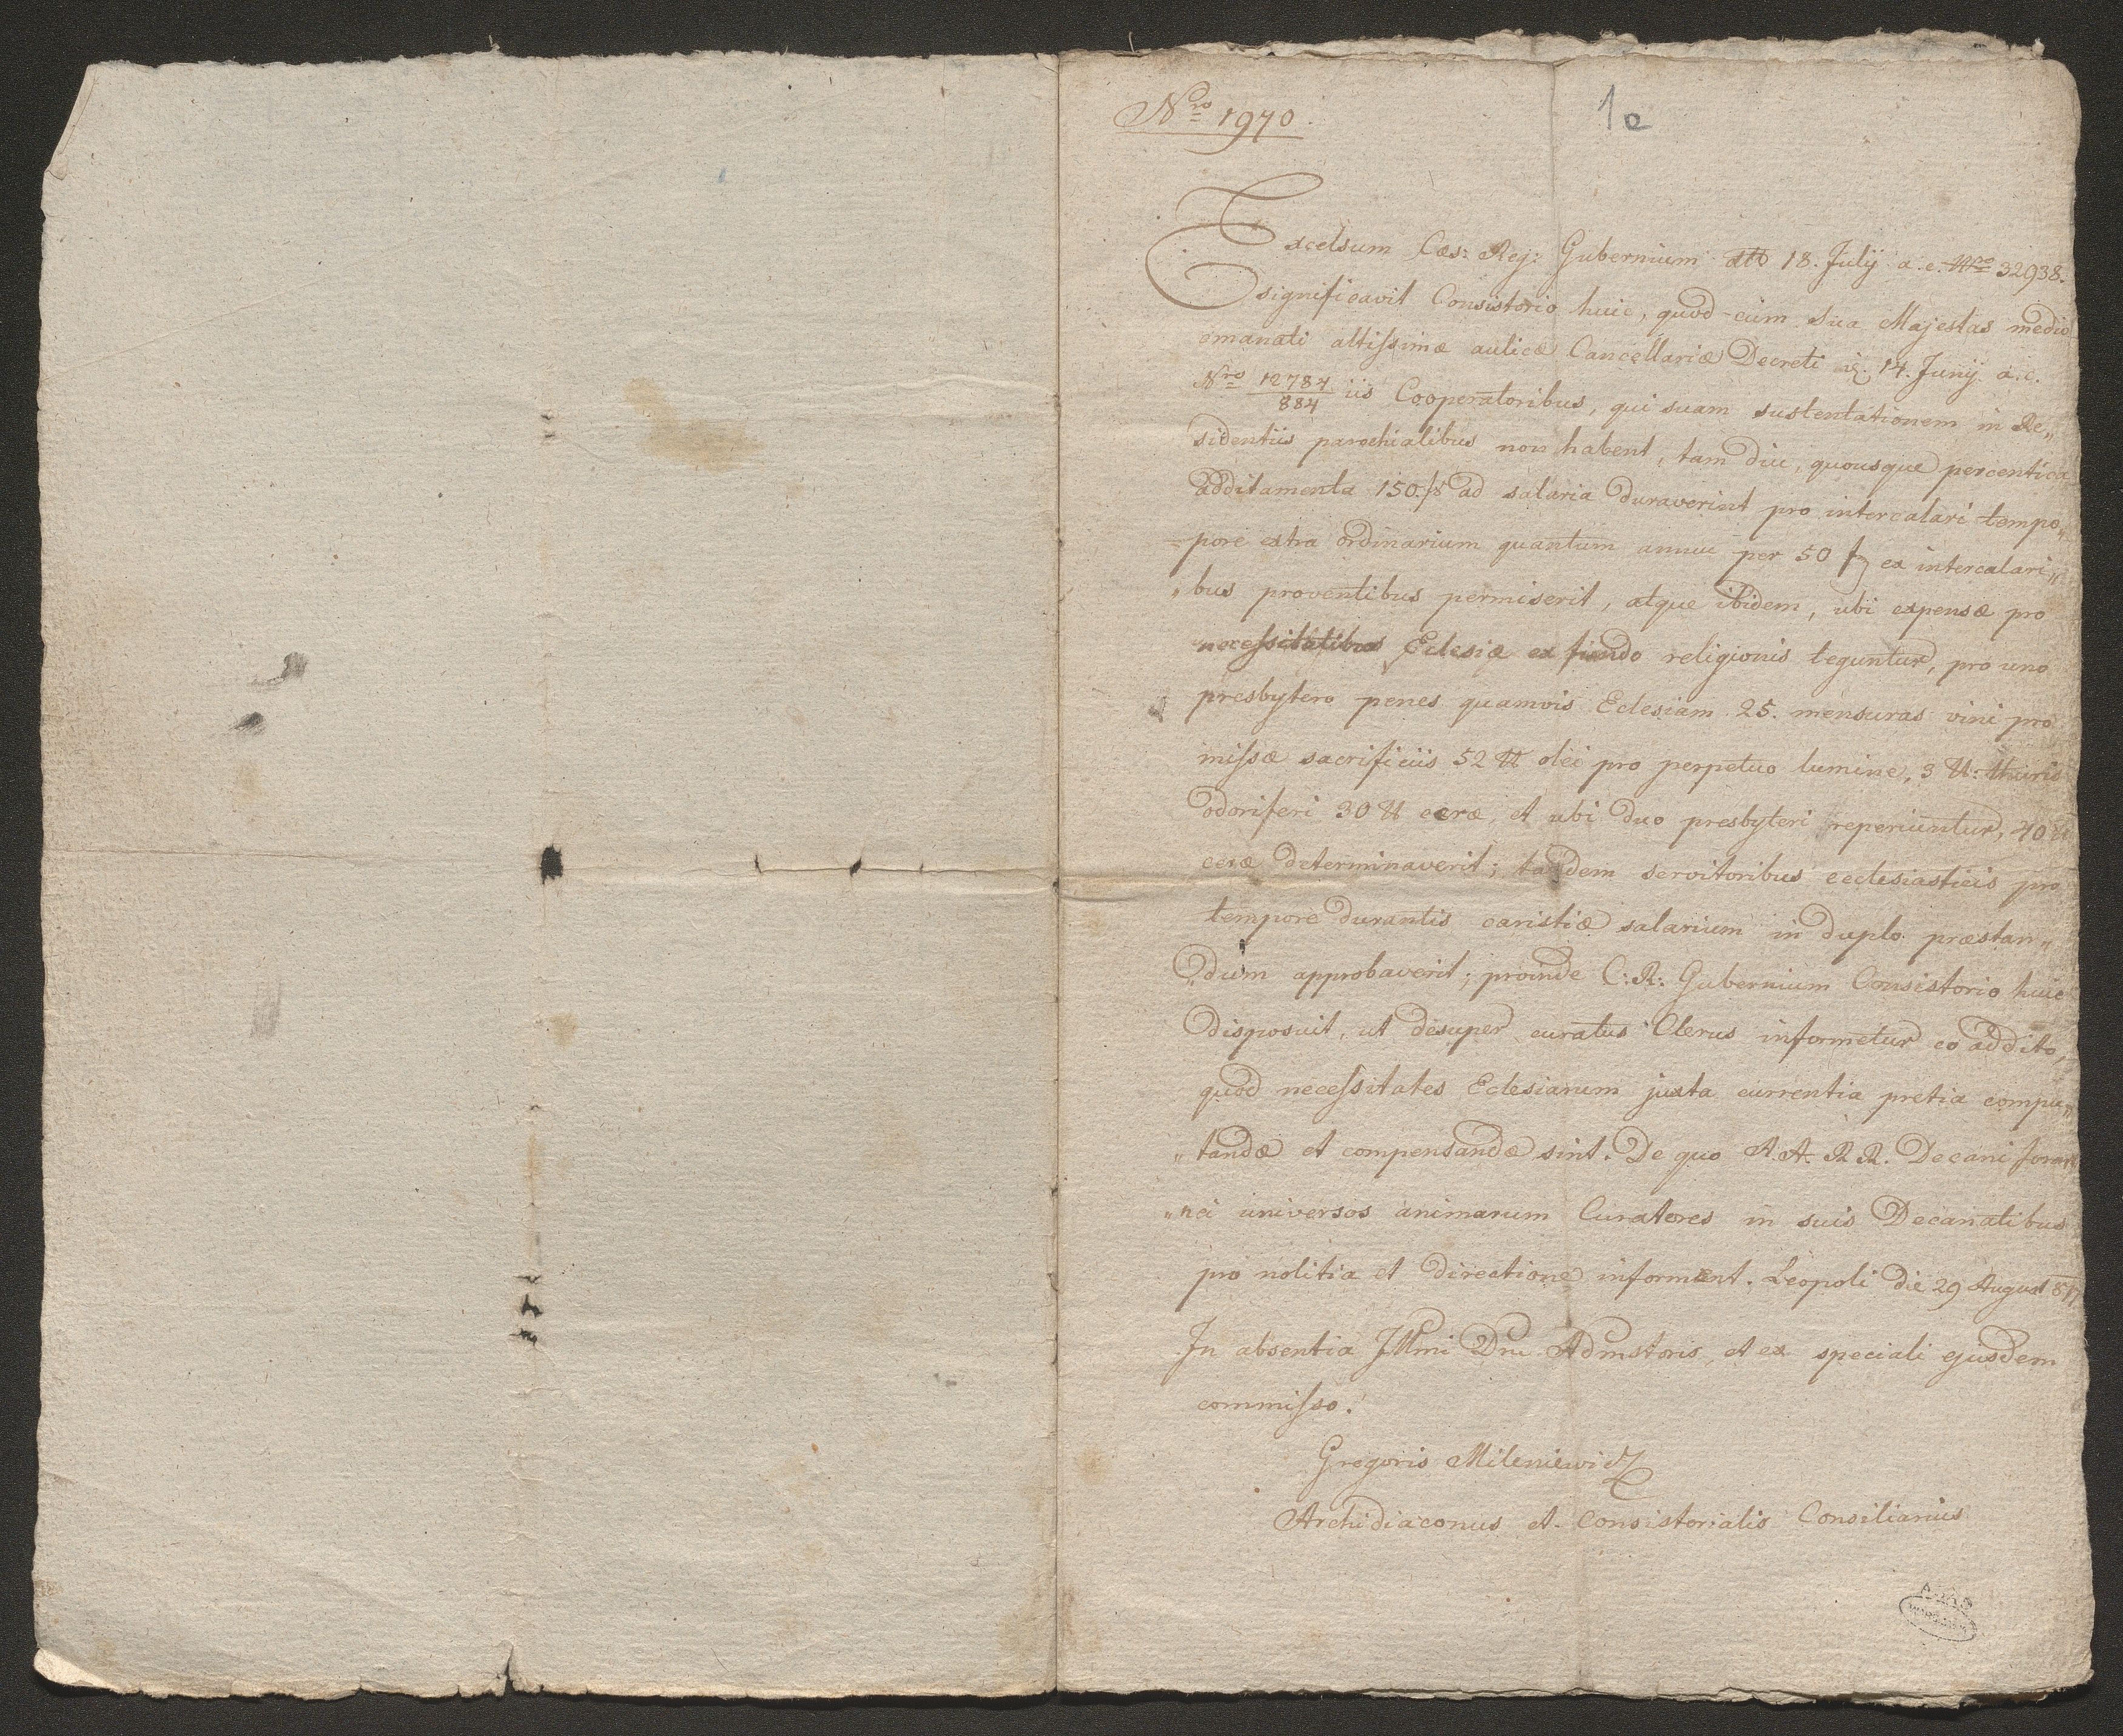 Nro 1970.
1a
Excelsum Cæs: Reg: Gubernium dto 18. July a.c. Nro 32938.
significavit Consistorio huic, quod cum sua Majestas medio
emanati altissimæ aulicæ Cancellariæ Decreti 14. Juny a.c.
Nro 12784/884 iis Cooperatoribus, qui suam sustentationem in Re„
sidentiis parochialibus non habent, tam diu, quousque percentica
additamenta 150. ad salaria duraverint pro intercalari tempo„
pore extra ordinarium quantum annue per 50 f ex intercalari„
„bus proventibus permiserit, atque ibidem, ubi expensæ pro
necessitatibus Eclesiæ ex fundo religionis teguntur, pro uno
presbytero penes quamvis Eclesiam 25. mensuras vini pro
missæ sacrificiis 52 ℔ olei pro perpetuo lumine, 3 ℔: thuris
odoriferi 30 ℔ ceræ, et ubi duo presbyteri reperiuntur, 40 ℔
ceræ determinaverit; tandem servitoribus ecclesiasticis pro
tempore durantis caristiæ salarium in duplo præstan„
„dum approbaverit; proinde C: R: Gubernium Consistorio huic
disposuit, ut desuper curatus Clerus informetur eo addito,
quod necessitates Eclesiarum juxta currentia pretia compu„
„tandæ et compensandæ sint. De quo A.A. R R. Decani fora„
„nei universos animarum Curatores in suis Decanatibus
pro notitia et directione informent. Leopoli die 29 August 817
In absentia Illmi Dni Admstoris, et ex speciali ejusdem
commisso.
Gregoris Mileniewicz
Archidiaconus et Consistorialis Consiliarius